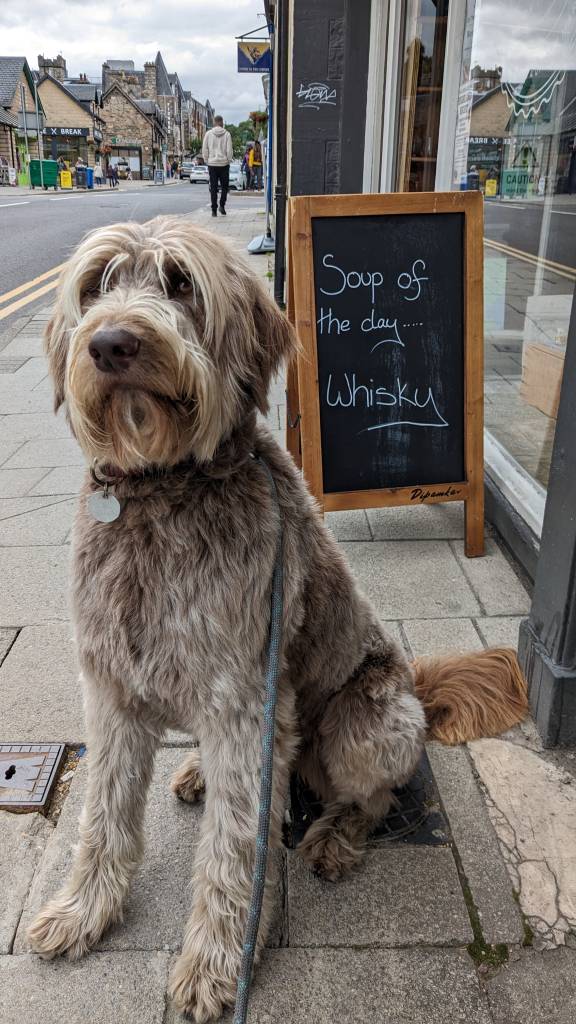 Soup of
the day.....
Whisky
E X BREAK
CAUTION